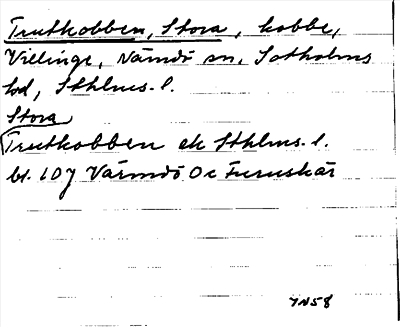 Trutkobben, Stora, kobbe,
Villinge, Värmdö sn, Sotholms
hd, Sthlms. l.
Stora
Trutkobben ek Sthlms. l.
bl. 107 Värmdö Oc Furuskär
IN58